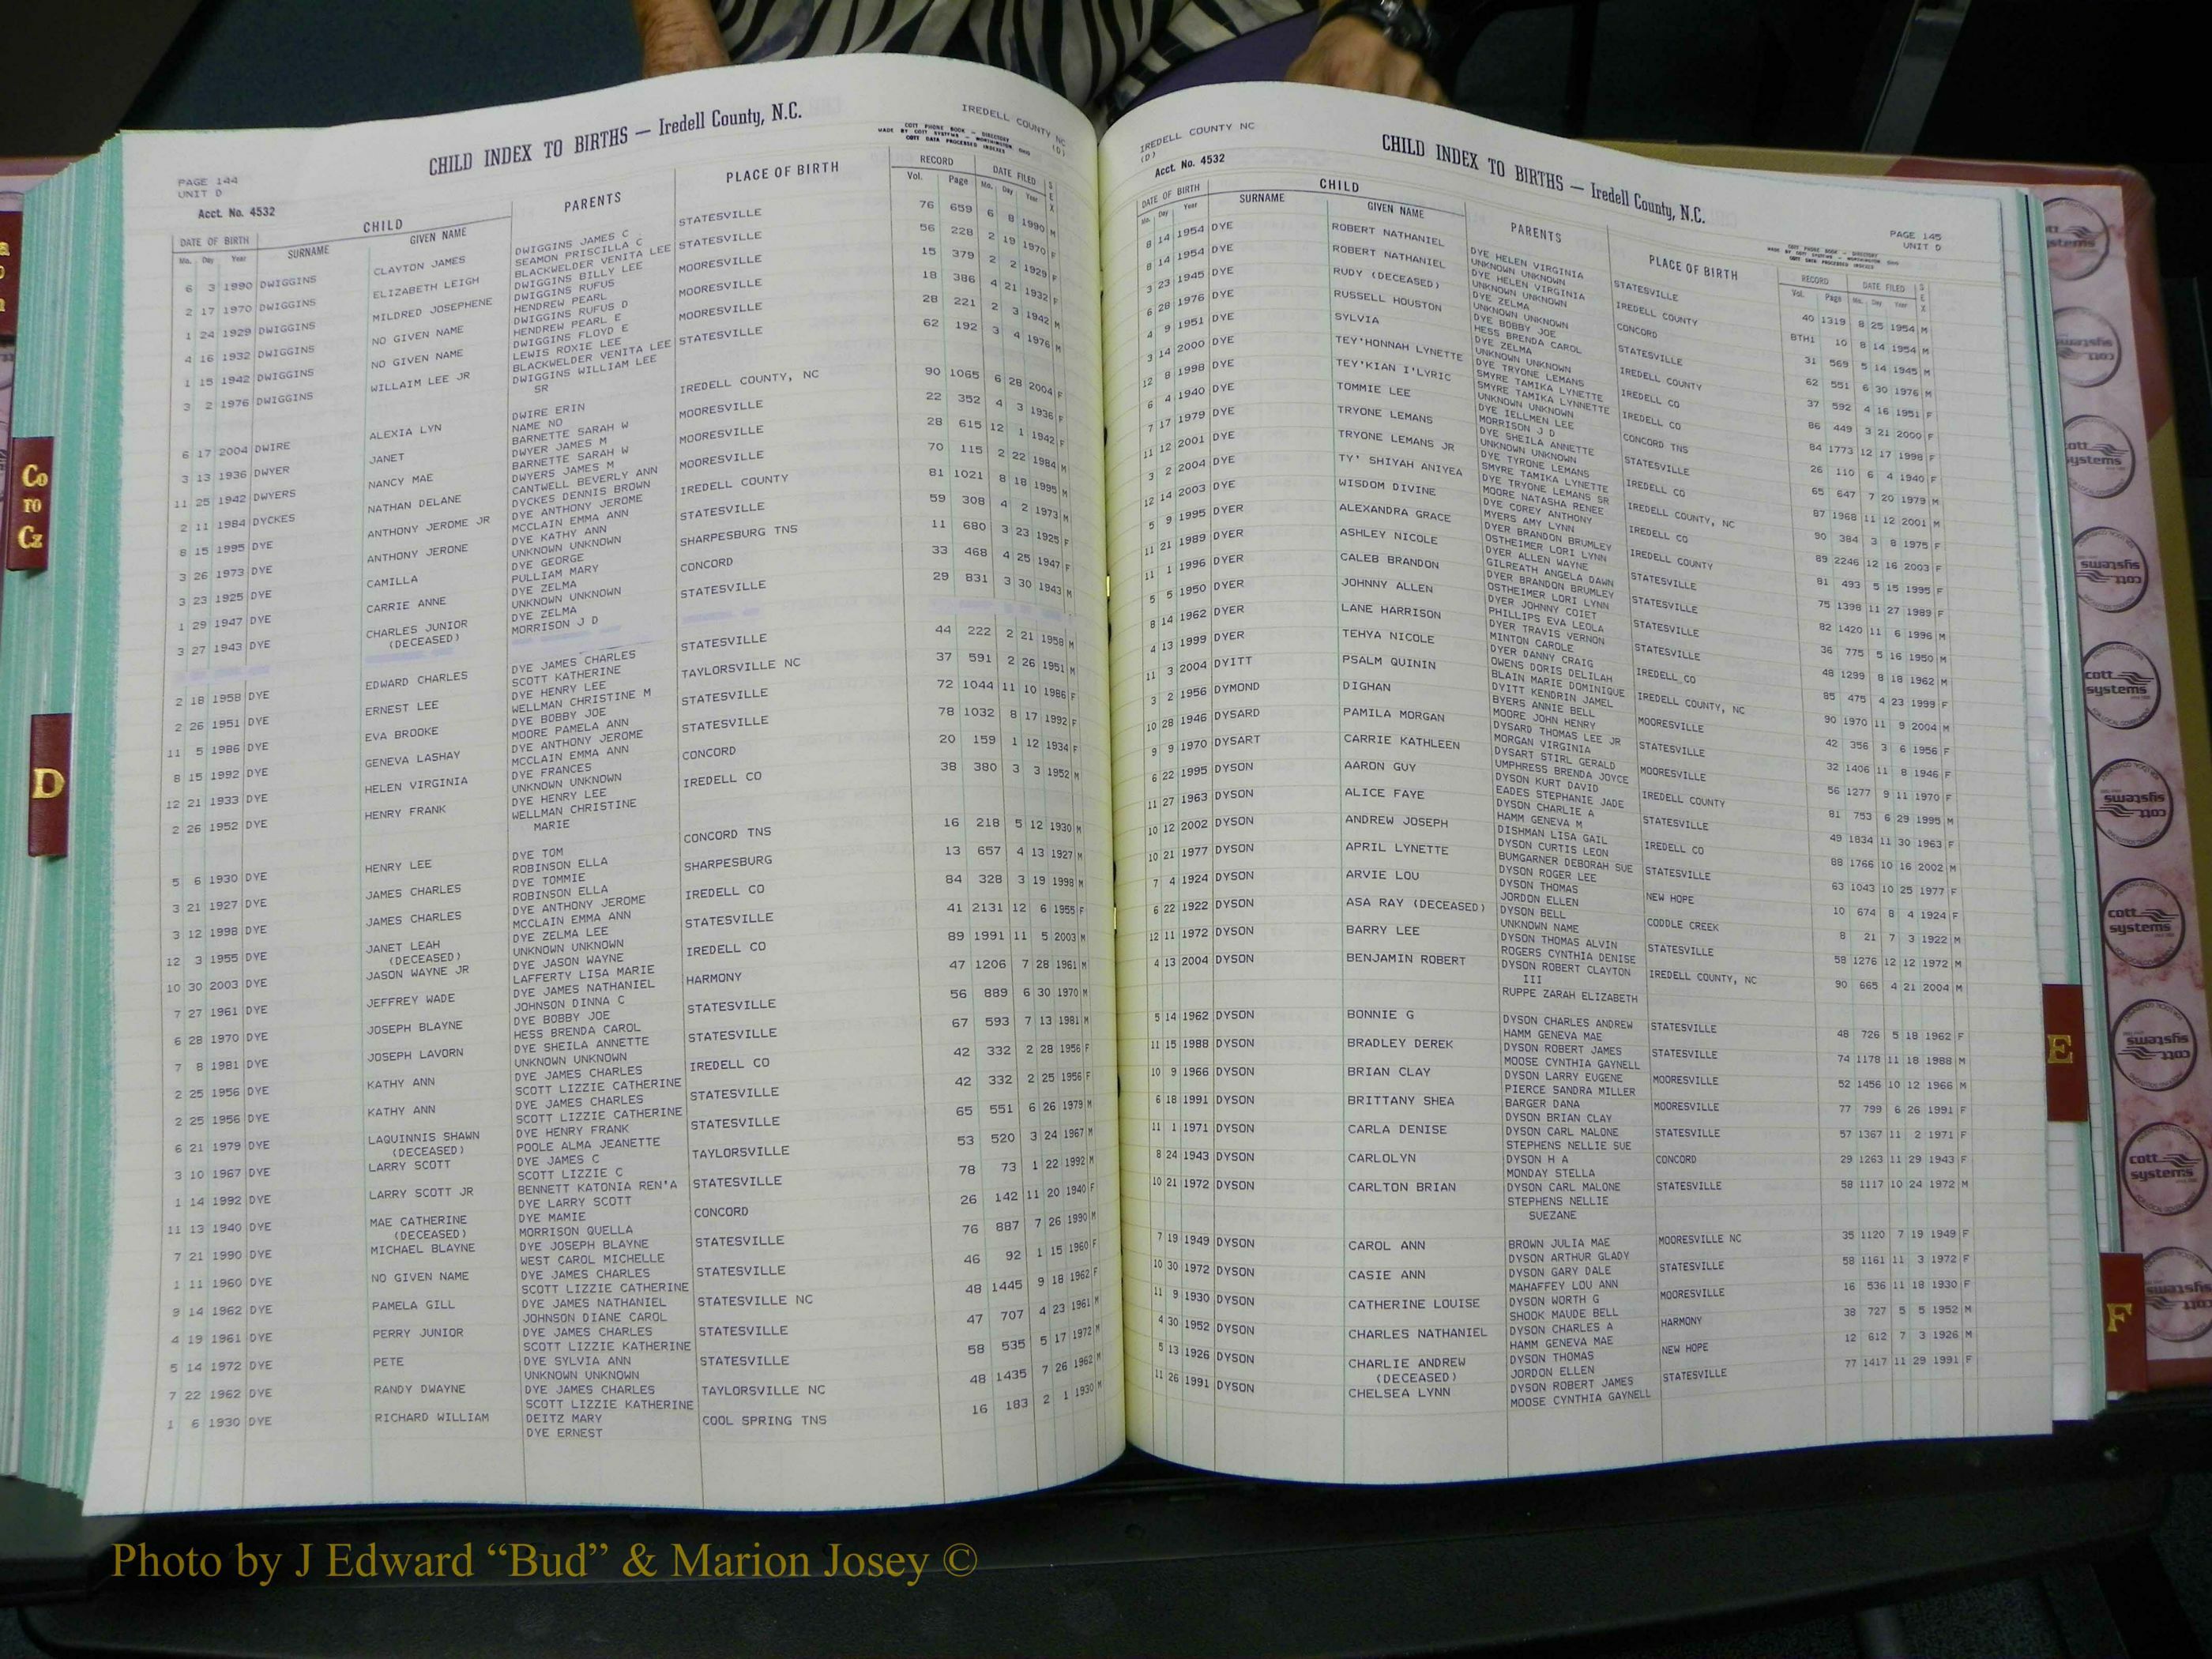 CHILD INDEX TO BIRTHS — Iredell County, N.C.
IREDELL COUNTY NC
(D)
COTT PHONE BOOK — DIRECTORY
MADE BY COTT SYSTEMS — WORTHINGTON, OHIO
COTT DATA PROCESSED INDEXES
PAGE 144
UNIT D
Acct. No. 4532
DATE OF BIRTH CHILD PARENTS PLACE OF BIRTH RECORD DATE FILED SEX
Mo. Day Year SURNAME GIVEN NAME Vol. Page Mo. Day Year
6 3 1990 DWIGGINS CLAYTON JAMES DWIGGINS JAMES C STATESVILLE 76 659 6 8 1990 M
SEAMON PRISCILLA C
2 17 1970 DWIGGINS ELIZABETH LEIGH BLACKWELDER VENITA LEE STATESVILLE 56 228 2 19 1970 F
DWIGGINS BILLY LEE
1 24 1929 DWIGGINS MILDRED JOSEPHENE DWIGGINS RUFUS MOORESVILLE 15 379 2 2 1929 F
HENDREW PEARL
4 16 1932 DWIGGINS NO GIVEN NAME DWIGGINS RUFUS D MOORESVILLE 18 386 4 21 1932 F
HENDREW PEARL E
1 15 1942 DWIGGINS NO GIVEN NAME DWIGGINS FLOYD E MOORESVILLE 28 221 2 3 1942 M
LEWIS ROXIE LEE
3 2 1976 DWIGGINS WILLAIM LEE JR BLACKWELDER VENITA LEE STATESVILLE 62 192 3 4 1976 M
DWIGGINS WILLIAM LEE
SR
6 17 2004 DWIRE ALEXIA LYN DWIRE ERIN IREDELL COUNTY, NC 90 1065 6 28 2004 F
NAME NO
3 13 1936 DWYER JANET BARNETTE SARAH W MOORESVILLE 22 352 4 3 1936 F
DWYER JAMES M
11 25 1942 DWYERS NANCY MAE BARNETTE SARAH W MOORESVILLE 28 615 12 1 1942 F
DWYERS JAMES M
2 11 1984 DYCKES NATHAN DELANE CANTWELL BEVERLY ANN MOORESVILLE 70 115 2 22 1984 M
DYCKES DENNIS BROWN
8 15 1995 DYE ANTHONY JEROME JR DYE ANTHONY JEROME IREDELL COUNTY 81 1021 8 18 1995 M
MCCLAIN EMMA ANN
3 26 1973 DYE ANTHONY JERONE DYE KATHY ANN STATESVILLE 59 308 4 2 1973 M
UNKNOWN UNKNOWN
3 23 1925 DYE CAMILLA DYE GEORGE SHARPESBURG TNS 11 680 3 23 1925 F
PULLIAM MARY
1 29 1947 DYE CARRIE ANNE DYE ZELMA CONCORD 33 468 4 25 1947 F
UNKNOWN UNKNOWN
3 27 1943 DYE CHARLES JUNIOR DYE ZELMA STATESVILLE 29 831 3 30 1943 M
(DECEASED) MORRISON J D
2 18 1958 DYE EDWARD CHARLES DYE JAMES CHARLES STATESVILLE 44 222 2 21 1958 M
SCOTT KATHERINE
2 26 1951 DYE ERNEST LEE DYE HENRY LEE TAYLORSVILLE NC 37 591 2 26 1951 M
WELLMAN CHRISTINE M
11 5 1986 DYE EVA BROOKE DYE BOBBY JOE STATESVILLE 72 1044 11 10 1986 F
MOORE PAMELA ANN
8 15 1992 DYE GENEVA LASHAY DYE ANTHONY JEROME STATESVILLE 78 1032 8 17 1992 F
MCCLAIN EMMA ANN
12 21 1933 DYE HELEN VIRGINIA DYE FRANCES CONCORD 20 159 1 12 1934 F
UNKNOWN UNKNOWN
2 26 1952 DYE HENRY FRANK DYE HENRY LEE IREDELL CO 38 380 3 3 1952 M
WELLMAN CHRISTINE
MARIE
5 6 1930 DYE HENRY LEE DYE TOM CONCORD TNS 16 218 5 12 1930 M
ROBINSON ELLA
3 21 1927 DYE JAMES CHARLES DYE TOMMIE SHARPESBURG 13 657 4 13 1927 M
ROBINSON ELLA
3 12 1998 DYE JAMES CHARLES DYE ANTHONY JEROME IREDELL CO 84 328 3 19 1998 M
MCCLAIN EMMA ANN
12 3 1955 DYE JANET LEAH DYE ZELMA LEE STATESVILLE 41 2131 12 6 1955 F
(DECEASED) UNKNOWN UNKNOWN
10 30 2003 DYE JASON WAYNE JR DYE JASON WAYNE IREDELL CO 89 1991 11 5 2003 M
LAFFERTY LISA MARIE
7 27 1961 DYE JEFFREY WADE DYE JAMES NATHANIEL HARMONY 47 1206 7 28 1961 M
JOHNSON DINNA C
6 28 1970 DYE JOSEPH BLAYNE DYE BOBBY JOE STATESVILLE 56 889 6 30 1970 M
HESS BRENDA CAROL
7 8 1981 DYE JOSEPH LAVORN DYE SHEILA ANNETTE STATESVILLE 67 593 7 13 1981 M
UNKNOWN UNKNOWN
2 25 1956 DYE KATHY ANN DYE JAMES CHARLES IREDELL CO 42 332 2 28 1956 F
SCOTT LIZZIE CATHERINE
2 25 1956 DYE KATHY ANN DYE JAMES CHARLES STATESVILLE 42 332 2 25 1956 F
SCOTT LIZZIE CATHERINE
6 21 1979 DYE LAQUINNIS SHAWN DYE HENRY FRANK STATESVILLE 65 551 6 26 1979 M
(DECEASED) POOLE ALMA JEANETTE
3 10 1967 DYE LARRY SCOTT DYE JAMES C TAYLORSVILLE 53 520 3 24 1967 M
SCOTT LIZZIE C
1 14 1992 DYE LARRY SCOTT JR BENNETT KATONIA REN'A STATESVILLE 78 73 1 22 1992 M
DYE LARRY SCOTT
11 13 1940 DYE MAE CATHERINE DYE MAMIE CONCORD 26 142 11 20 1940 F
(DECEASED) MORRISON QUELLA
7 21 1990 DYE MICHAEL BLAYNE DYE JOSEPH BLAYNE STATESVILLE 76 887 7 26 1990 M
WEST CAROL MICHELLE
1 11 1960 DYE NO GIVEN NAME DYE JAMES CHARLES STATESVILLE 46 92 1 15 1960 F
SCOTT LIZZIE CATHERINE
9 14 1962 DYE PAMELA GILL DYE JAMES NATHANIEL STATESVILLE NC 48 1445 9 18 1962 F
JOHNSON DIANE CAROL
4 19 1961 DYE PERRY JUNIOR DYE JAMES CHARLES STATESVILLE 47 707 4 23 1961 M
SCOTT LIZZIE KATHERINE
5 14 1972 DYE PETE DYE SYLVIA ANN STATESVILLE 58 535 5 17 1972 M
UNKNOWN UNKNOWN
7 22 1962 DYE RANDY DWAYNE DYE JAMES CHARLES TAYLORSVILLE NC 48 1435 7 26 1962 M
SCOTT LIZZIE KATHERINE
1 6 1930 DYE RICHARD WILLIAM DEITZ MARY COOL SPRING TNS 16 183 2 1 1930 M
DYE ERNEST
IREDELL COUNTY NC
(D)
Acct. No. 4532
CHILD INDEX TO BIRTHS — Iredell County, N.C.
PAGE 145
UNIT D
COTT PHONE BOOK — DIRECTORY
MADE BY COTT SYSTEMS — WORTHINGTON, OHIO
COTT DATA PROCESSED INDEXES
DATE OF BIRTH CHILD PARENTS PLACE OF BIRTH RECORD DATE FILED SEX
Mo. Day Year SURNAME GIVEN NAME Vol. Page Mo. Day Year
8 14 1954 DYE ROBERT NATHANIEL DYE HELEN VIRGINIA STATESVILLE 40 1319 8 25 1954 M
UNKNOWN UNKNOWN
8 14 1954 DYE ROBERT NATHANIEL DYE HELEN VIRGINIA IREDELL COUNTY BTH1 10 8 14 1954 M
UNKNOWN UNKNOWN
3 23 1945 DYE RUDY (DECEASED) DYE ZELMA CONCORD 31 569 5 14 1945 M
UNKNOWN UNKNOWN
6 28 1976 DYE RUSSELL HOUSTON DYE BOBBY JOE STATESVILLE 62 551 6 30 1976 M
HESS BRENDA CAROL
4 9 1951 DYE SYLVIA DYE ZELMA IREDELL COUNTY 37 592 4 16 1951 F
UNKNOWN UNKNOWN
3 14 2000 DYE TEY'HONNAH LYNETTE DYE TRYONE LEMANS IREDELL CO 86 449 3 21 2000 F
SMYRE TAMIKA LYNETTE
12 8 1998 DYE TEY'KIAN I'LYRIC SMYRE TAMIKA LYNNETTE IREDELL CO 84 1773 12 17 1998 F
UNKNOWN UNKNOWN
6 4 1940 DYE TOMMIE LEE DYE IELLMEN LEE CONCORD TNS 26 110 6 4 1940 F
MORRISON J D
7 17 1979 DYE TRYONE LEMANS DYE SHEILA ANNETTE STATESVILLE 65 647 7 20 1979 M
UNKNOWN UNKNOWN
11 12 2001 DYE TRYONE LEMANS JR DYE TYRONE LEMANS IREDELL CO 87 1968 11 12 2001 M
SMYRE TAMIKA LYNETTE
3 2 2004 DYE TY' SHIYAH ANIYEA DYE TRYONE LEMANS SR IREDELL COUNTY, NC 90 384 3 8 1975 F
MOORE NATASHA RENEE
12 14 2003 DYE WISDOM DIVINE DYE COREY ANTHONY IREDELL CO 89 2246 12 16 2003 F
MYERS AMY LYNN
5 9 1995 DYER ALEXANDRA GRACE DYER BRANDON BRUMLEY IREDELL COUNTY 81 493 5 15 1995 F
OSTHEIMER LORI LYNN
11 21 1989 DYER ASHLEY NICOLE DYER ALLEN WAYNE STATESVILLE 75 1398 11 27 1989 F
GILREATH ANGELA DAWN
11 1 1996 DYER CALEB BRANDON DYER BRANDON BRUMLEY STATESVILLE 82 1420 11 6 1996 M
OSTHEIMER LORI LYNN
5 5 1950 DYER JOHNNY ALLEN DYER JOHNNY COIET STATESVILLE 36 775 5 16 1950 M
PHILLIPS EVA LEOLA
8 14 1962 DYER LANE HARRISON DYER TRAVIS VERNON STATESVILLE 48 1299 8 18 1962 M
MINTON CAROLE
4 13 1999 DYER TEHYA NICOLE DYER DANNY CRAIG IREDELL CO 85 475 4 23 1999 F
OWENS DORIS DELILAH
11 3 2004 DYITT PSALM QUININ BLAIN MARIE DOMINIQUE IREDELL COUNTY, NC 90 1970 11 9 2004 M
DYITT KENDRIN JAMEL
3 2 1956 DYMOND DIGHAN BYERS ANNIE BELL MOORESVILLE 42 356 3 6 1956 F
MOORE JOHN HENRY
10 28 1946 DYSARD PAMILA MORGAN DYSARD THOMAS LEE JR STATESVILLE 32 1406 11 8 1946 F
MORGAN VIRGINIA
9 9 1970 DYSART CARRIE KATHLEEN DYSART STIRL GERALD MOORESVILLE 56 1277 9 11 1970 F
UMPHRESS BRENDA JOYCE
6 22 1995 DYSON AARON GUY DYSON KURT DAVID IREDELL COUNTY 81 753 6 29 1995 M
EADES STEPHANIE JADE
11 27 1963 DYSON ALICE FAYE DYSON CHARLIE A STATESVILLE 49 1834 11 30 1963 F
HAMM GENEVA M
10 12 2002 DYSON ANDREW JOSEPH DISHMAN LISA GAIL IREDELL CO 88 1766 10 16 2002 M
DYSON CURTIS LEON
10 21 1977 DYSON APRIL LYNETTE BUMGARNER DEBORAH SUE STATESVILLE 63 1043 10 25 1977 F
DYSON ROGER LEE
7 4 1924 DYSON ARVIE LOU DYSON THOMAS NEW HOPE 10 674 8 4 1924 F
JORDON ELLEN
6 22 1922 DYSON ASA RAY (DECEASED) DYSON BELL CODDLE CREEK 8 21 7 3 1922 M
UNKNOWN NAME
12 11 1972 DYSON BARRY LEE DYSON THOMAS ALVIN STATESVILLE 58 1276 12 12 1972 M
ROGERS CYNTHIA DENISE
4 13 2004 DYSON BENJAMIN ROBERT DYSON ROBERT CLAYTON IREDELL COUNTY, NC 90 665 4 21 2004 M
III
RUPPE ZARAH ELIZABETH
5 14 1962 DYSON BONNIE G DYSON CHARLES ANDREW STATESVILLE 48 726 5 18 1962 F
HAMM GENEVA MAE
11 15 1988 DYSON BRADLEY DEREK DYSON ROBERT JAMES STATESVILLE 74 1178 11 18 1988 M
MOOSE CYNTHIA GAYNELL
10 9 1966 DYSON BRIAN CLAY DYSON LARRY EUGENE MOORESVILLE 52 1456 10 12 1966 M
PIERCE SANDRA MILLER
6 18 1991 DYSON BRITTANY SHEA BARGER DANA MOORESVILLE 77 799 6 26 1991 F
DYSON BRIAN CLAY
11 1 1971 DYSON CARLA DENISE DYSON CARL MALONE STATESVILLE 57 1367 11 2 1971 F
STEPHENS NELLIE SUE
8 24 1943 DYSON CARLOLYN DYSON H A CONCORD 29 1263 11 29 1943 F
MONDAY STELLA
10 21 1972 DYSON CARLTON BRIAN DYSON CARL MALONE STATESVILLE 58 1117 10 24 1972 M
STEPHENS NELLIE
SUEZANE
7 19 1949 DYSON CAROL ANN BROWN JULIA MAE MOORESVILLE NC 35 1120 7 19 1949 F
DYSON ARTHUR GLADY
10 30 1972 DYSON CASIE ANN DYSON GARY DALE STATESVILLE 58 1161 11 3 1972 F
MAHAFFEY LOU ANN
11 9 1930 DYSON CATHERINE LOUISE DYSON WORTH G MOORESVILLE 16 536 11 18 1930 F
SHOOK MAUDE BELL
4 30 1952 DYSON CHARLES NATHANIEL DYSON CHARLES A HARMONY 38 727 5 5 1952 M
HAMM GENEVA MAE
5 13 1926 DYSON CHARLIE ANDREW DYSON THOMAS NEW HOPE 12 612 7 3 1926 M
(DECEASED) JORDON ELLEN
11 26 1991 DYSON CHELSEA LYNN DYSON ROBERT JAMES STATESVILLE 77 1417 11 29 1991 F
MOOSE CYNTHIA GAYNELL
Co
TO
Cz
D
E
F
cott systems
Photo by J Edward “Bud” & Marion Josey ©